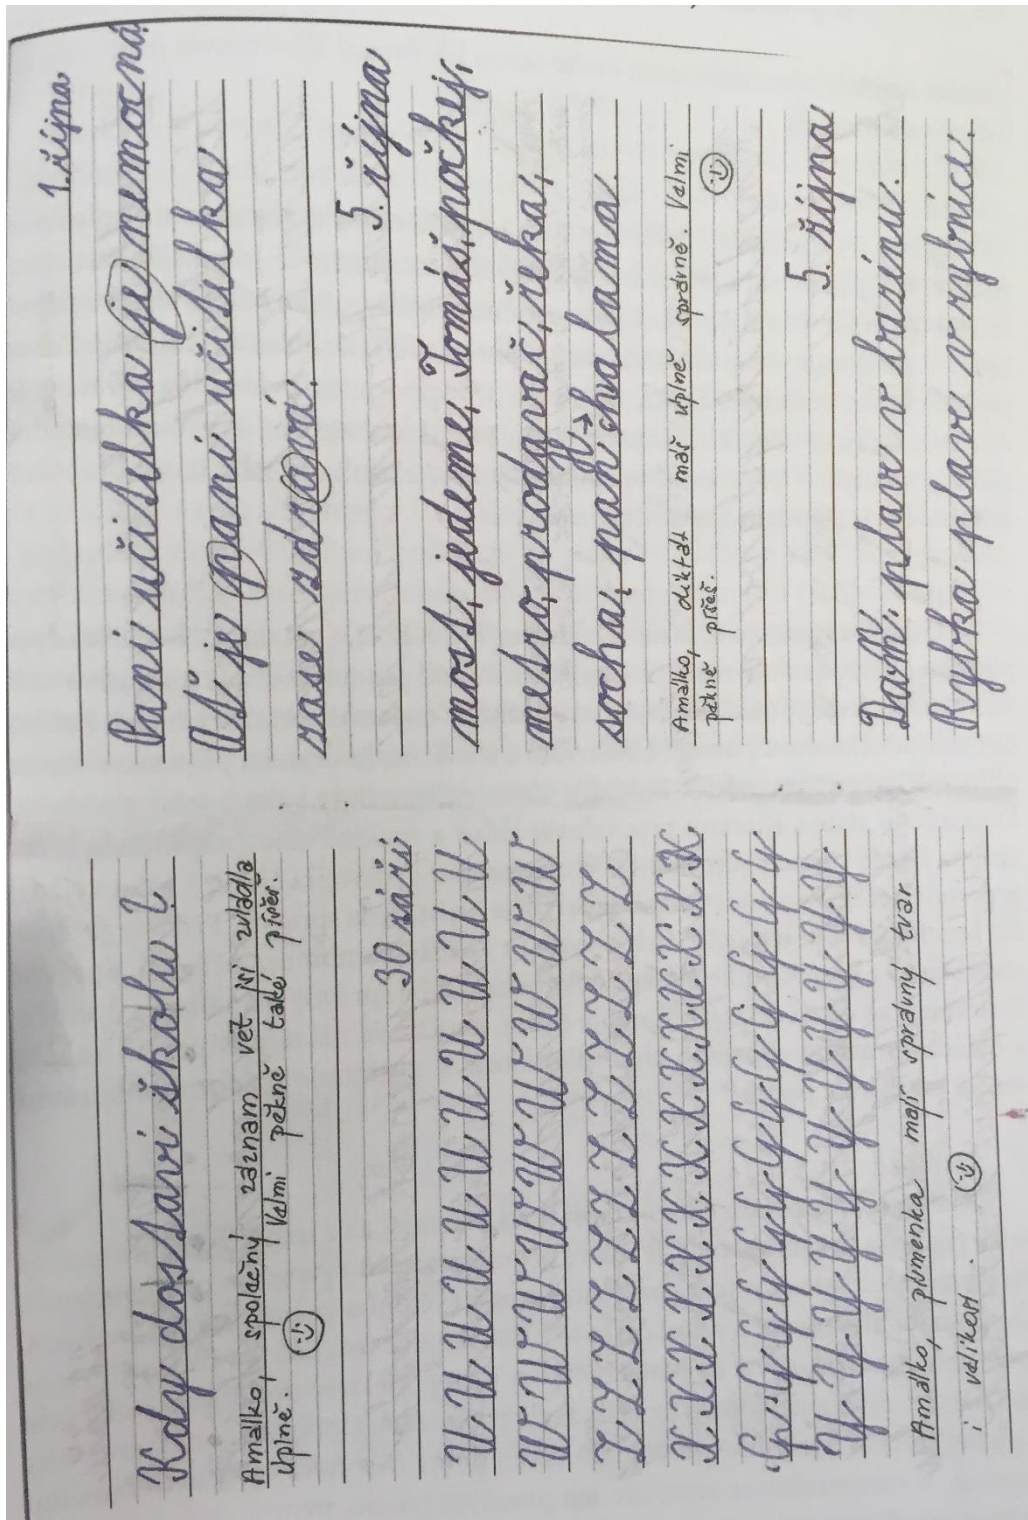 Kdy dostaví školu?
Amálko, společný záznam vět jsi zvládla
úplně. Velmi pěkně také píšeš.
30 září
U U U U U U U U U U
W W W W W W W W W W
Z Z Z Z Z Z Z Z Z Z
X X X X X X X X X X X X X
Y Y Y Y Y Y Y Y Y Y
Amálko, písmenka mají správný tvar
i velikost.
1. října
Paní učitelka je nemocná.
Ať je paní učitelka
zase zdravá.
5. října
most, jedeme, Tomáš, počkej,
metro, prodavač, řeka,
socha, pan, chalama.
Amálko, diktát máš úplně správně. Velmi
pěkně píšeš.
5. října
plave v bazénu.
Rybka plave v rybníce.